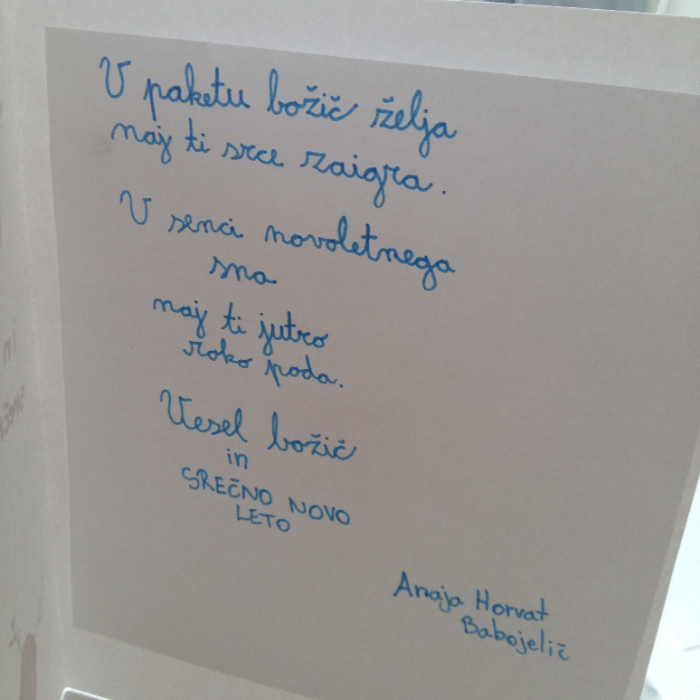 V paketu božič želja
naj ti srce zaigra.
V senci novoletnega
sna
naj ti jutro
roko poda.
Vesel božič
in
SREČNO NOVO
LETO
Anaja Horvat
Babojelič